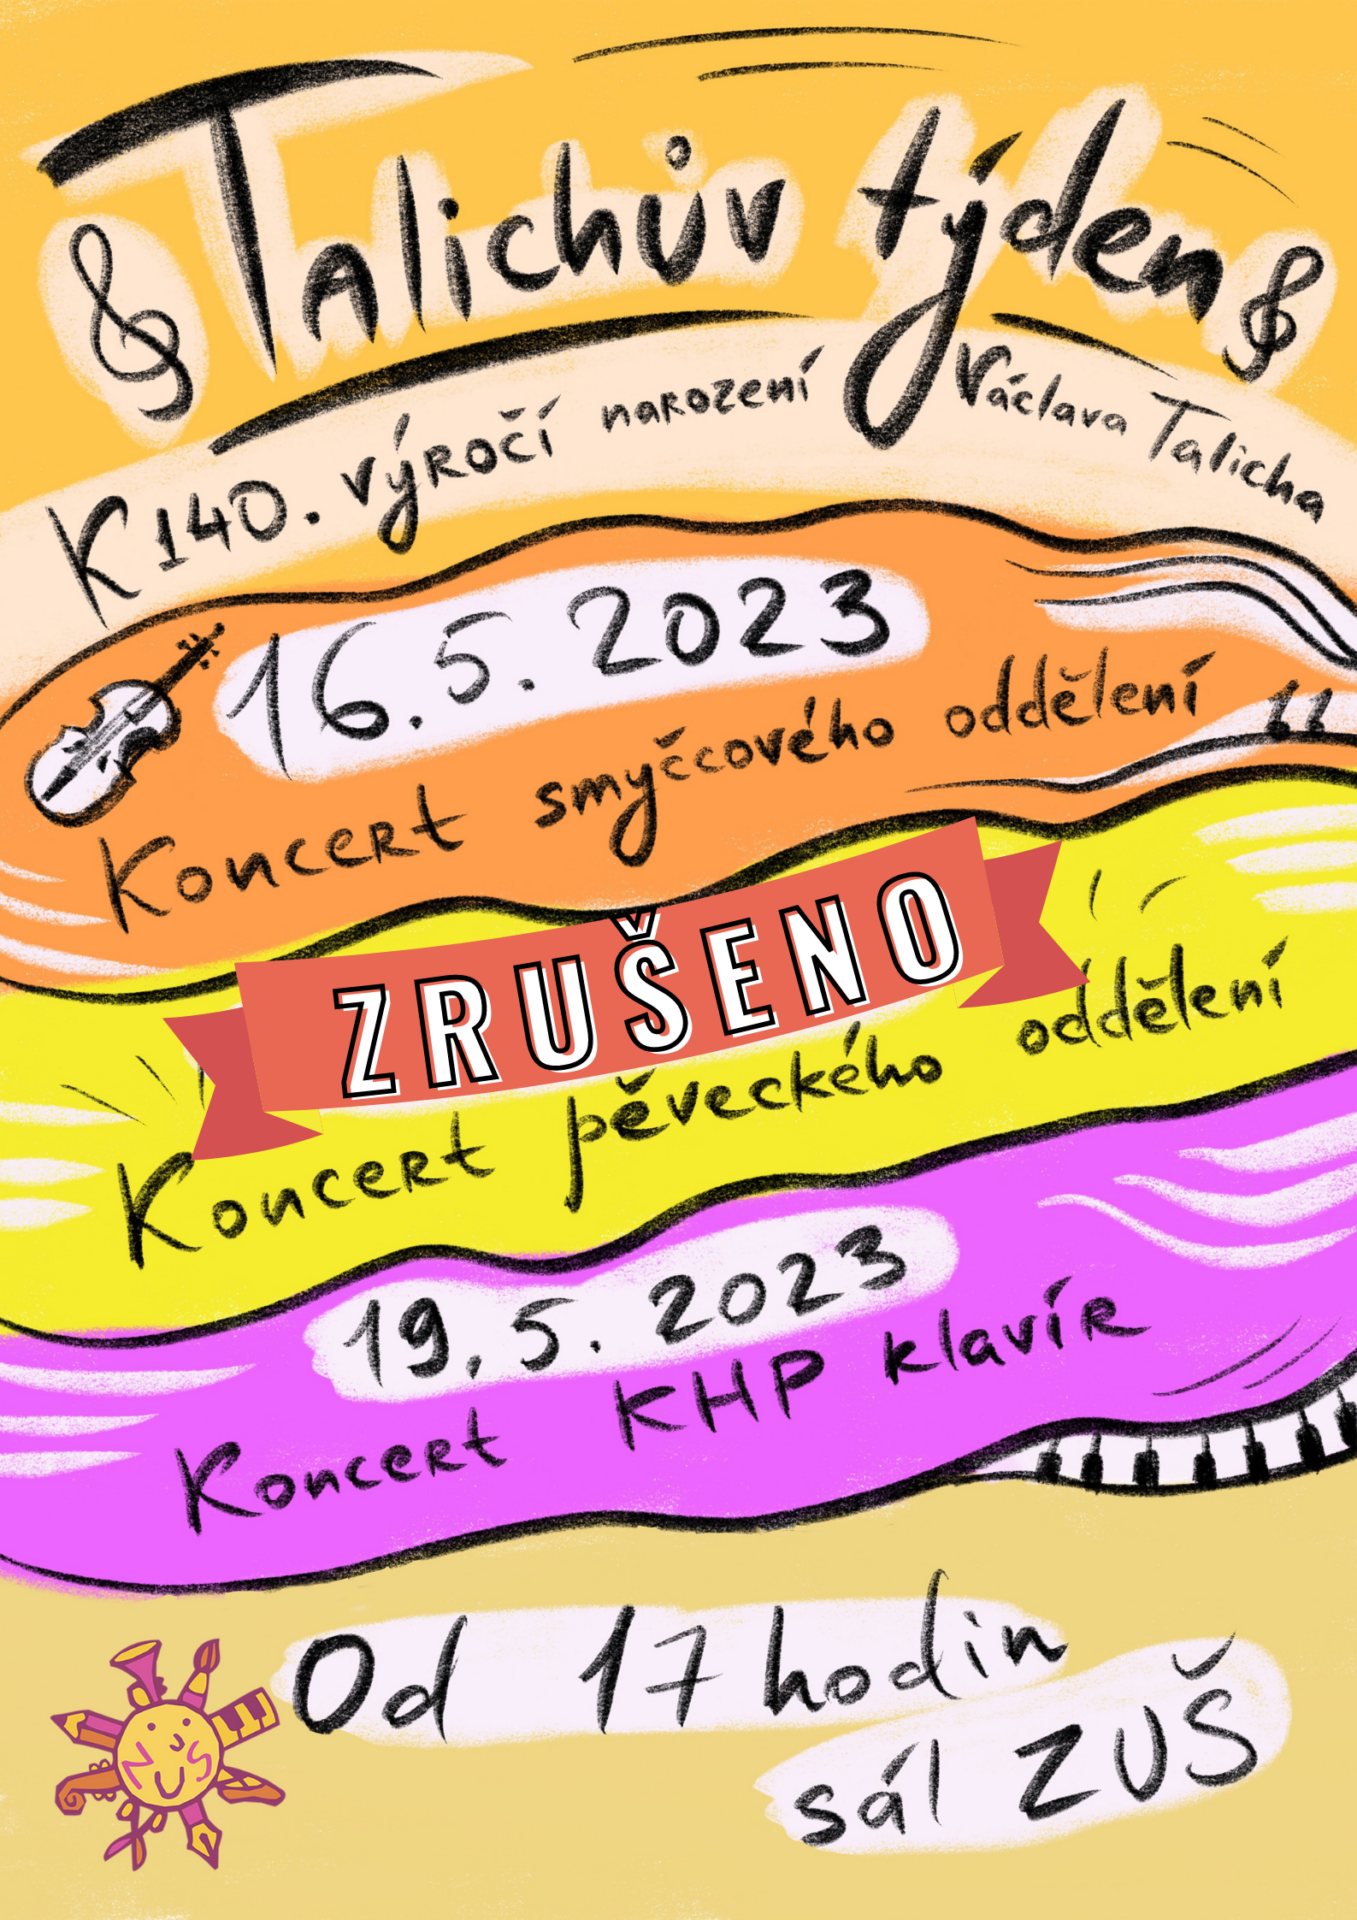 Talichův týden
K 140. výročí narození Václava Talicha
16. 5. 2023
Koncert smyčcového oddělení
ZRUŠENO
Koncert pěveckého oddělení
19. 5. 2023
Koncert KHP klavír
Od 17 hodin
sál ZUŠ
ZUŠ